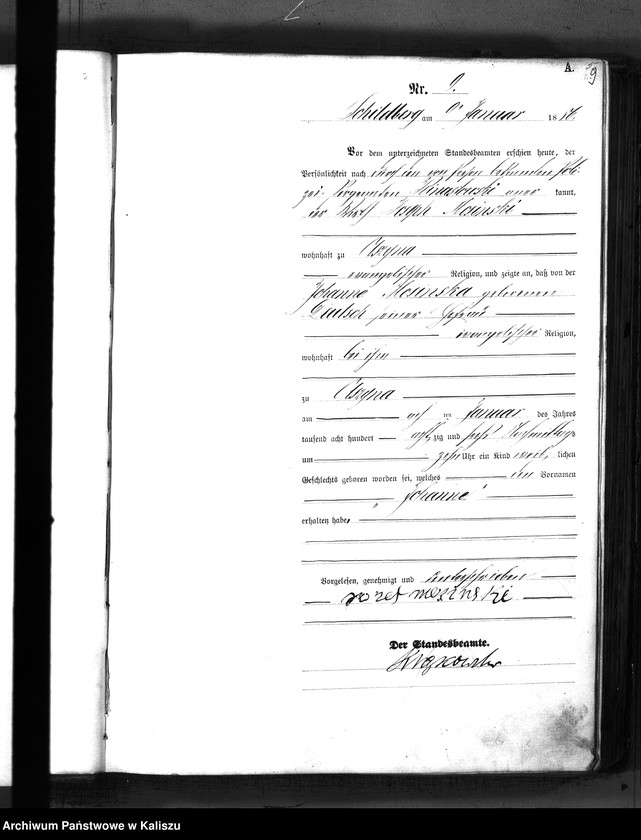 A.
9
Nr. 9.
Schildberg am 9. Januar 1886.
Vor dem unterzeichneten Standesbeamten erschien heute, der
Persönlichkeit nach durch den
kannt,
der Joseph
wohnhaft zu Olszyna
evangelischer Religion, und zeigte an, daß von der
Johanna geborenen
Deutsch seiner Ehefrau
evangelischer Religion,
wohnhaft bei ihm
zu Olszyna
am acht ten Januar des Jahres
tausend acht hundert achtzig und sechs Nachmittags
um zehn Uhr ein Kind weiblichen
Geschlechts geboren worden sei, welches den Vornamen
"Johanna"
erhalten habe
Vorgelesen, genehmigt und unterschrieben
Der Standesbeamte.
Archiwum Państwowe w Kaliszu